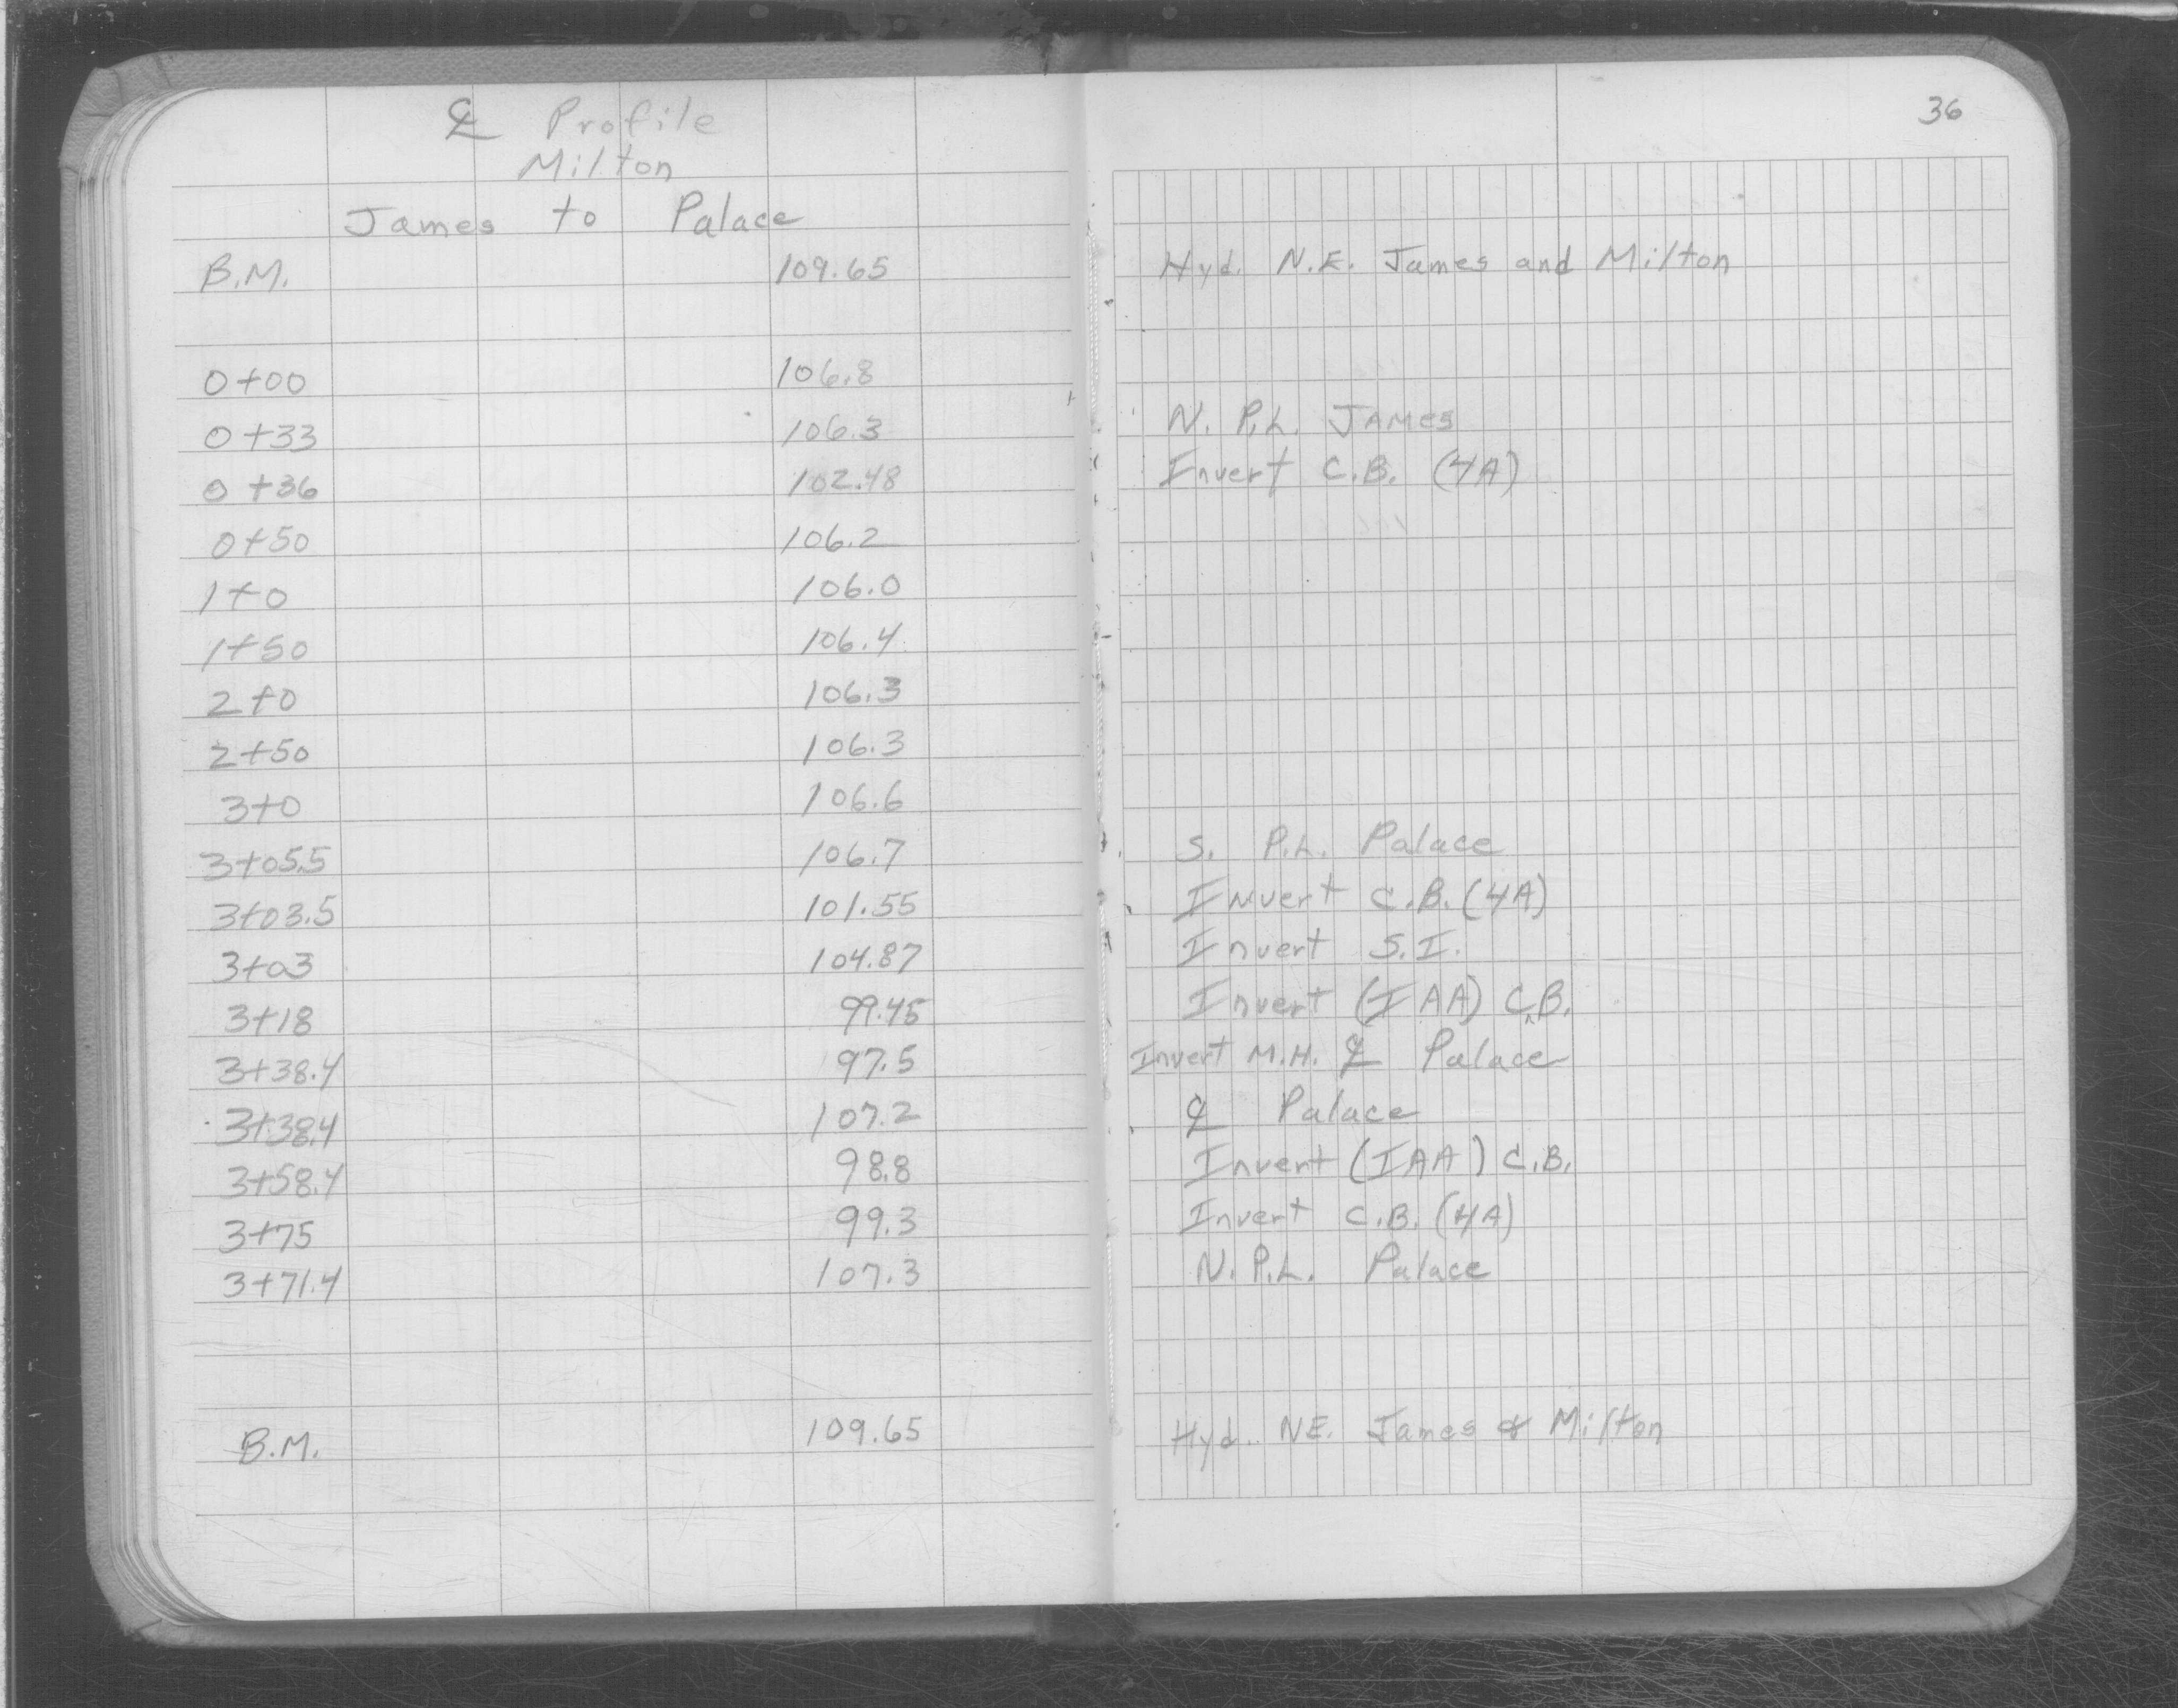 36
℄ Profile
Milton
James to Palace
B.M. 109.65 Hyd. N.E. James and Milton
0+00 106.8
0+33 106.3 N. P.L. JAMes
0+36 102.48 Invert C.B. (4A)
0+50 106.2
1+0 106.0
1+50 106.4
2+0 106.3
2+50 106.3
3+0 106.6
3+05.5 106.7 S. P.L. Palace
3+03.5 101.55 Invert C.B. (4A)
3+03 104.87 Invert S.I.
3+18 99.45 Invert (IAA) C.B.
3+38.4 97.5 Invert M.H. ℄ Palace
3+38.4 107.2 ℄ Palace
3+58.4 98.8 Invert (IAA) C.B.
3+75 99.3 Invert C.B. (4A)
3+71.4 107.3 N. P.L. Palace
B.M. 109.65 Hyd. NE. James & Milton